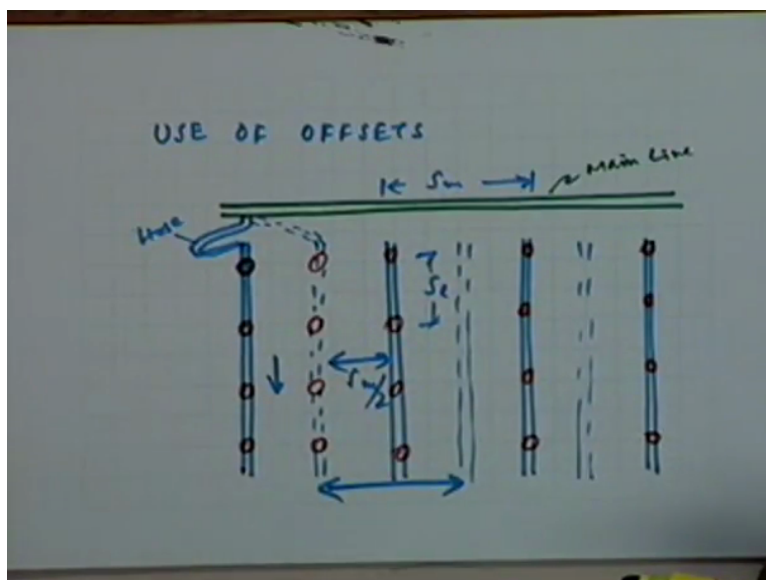 USE OF OFFSETS
Sm
Main Line
Hose
Sl
Sm/2